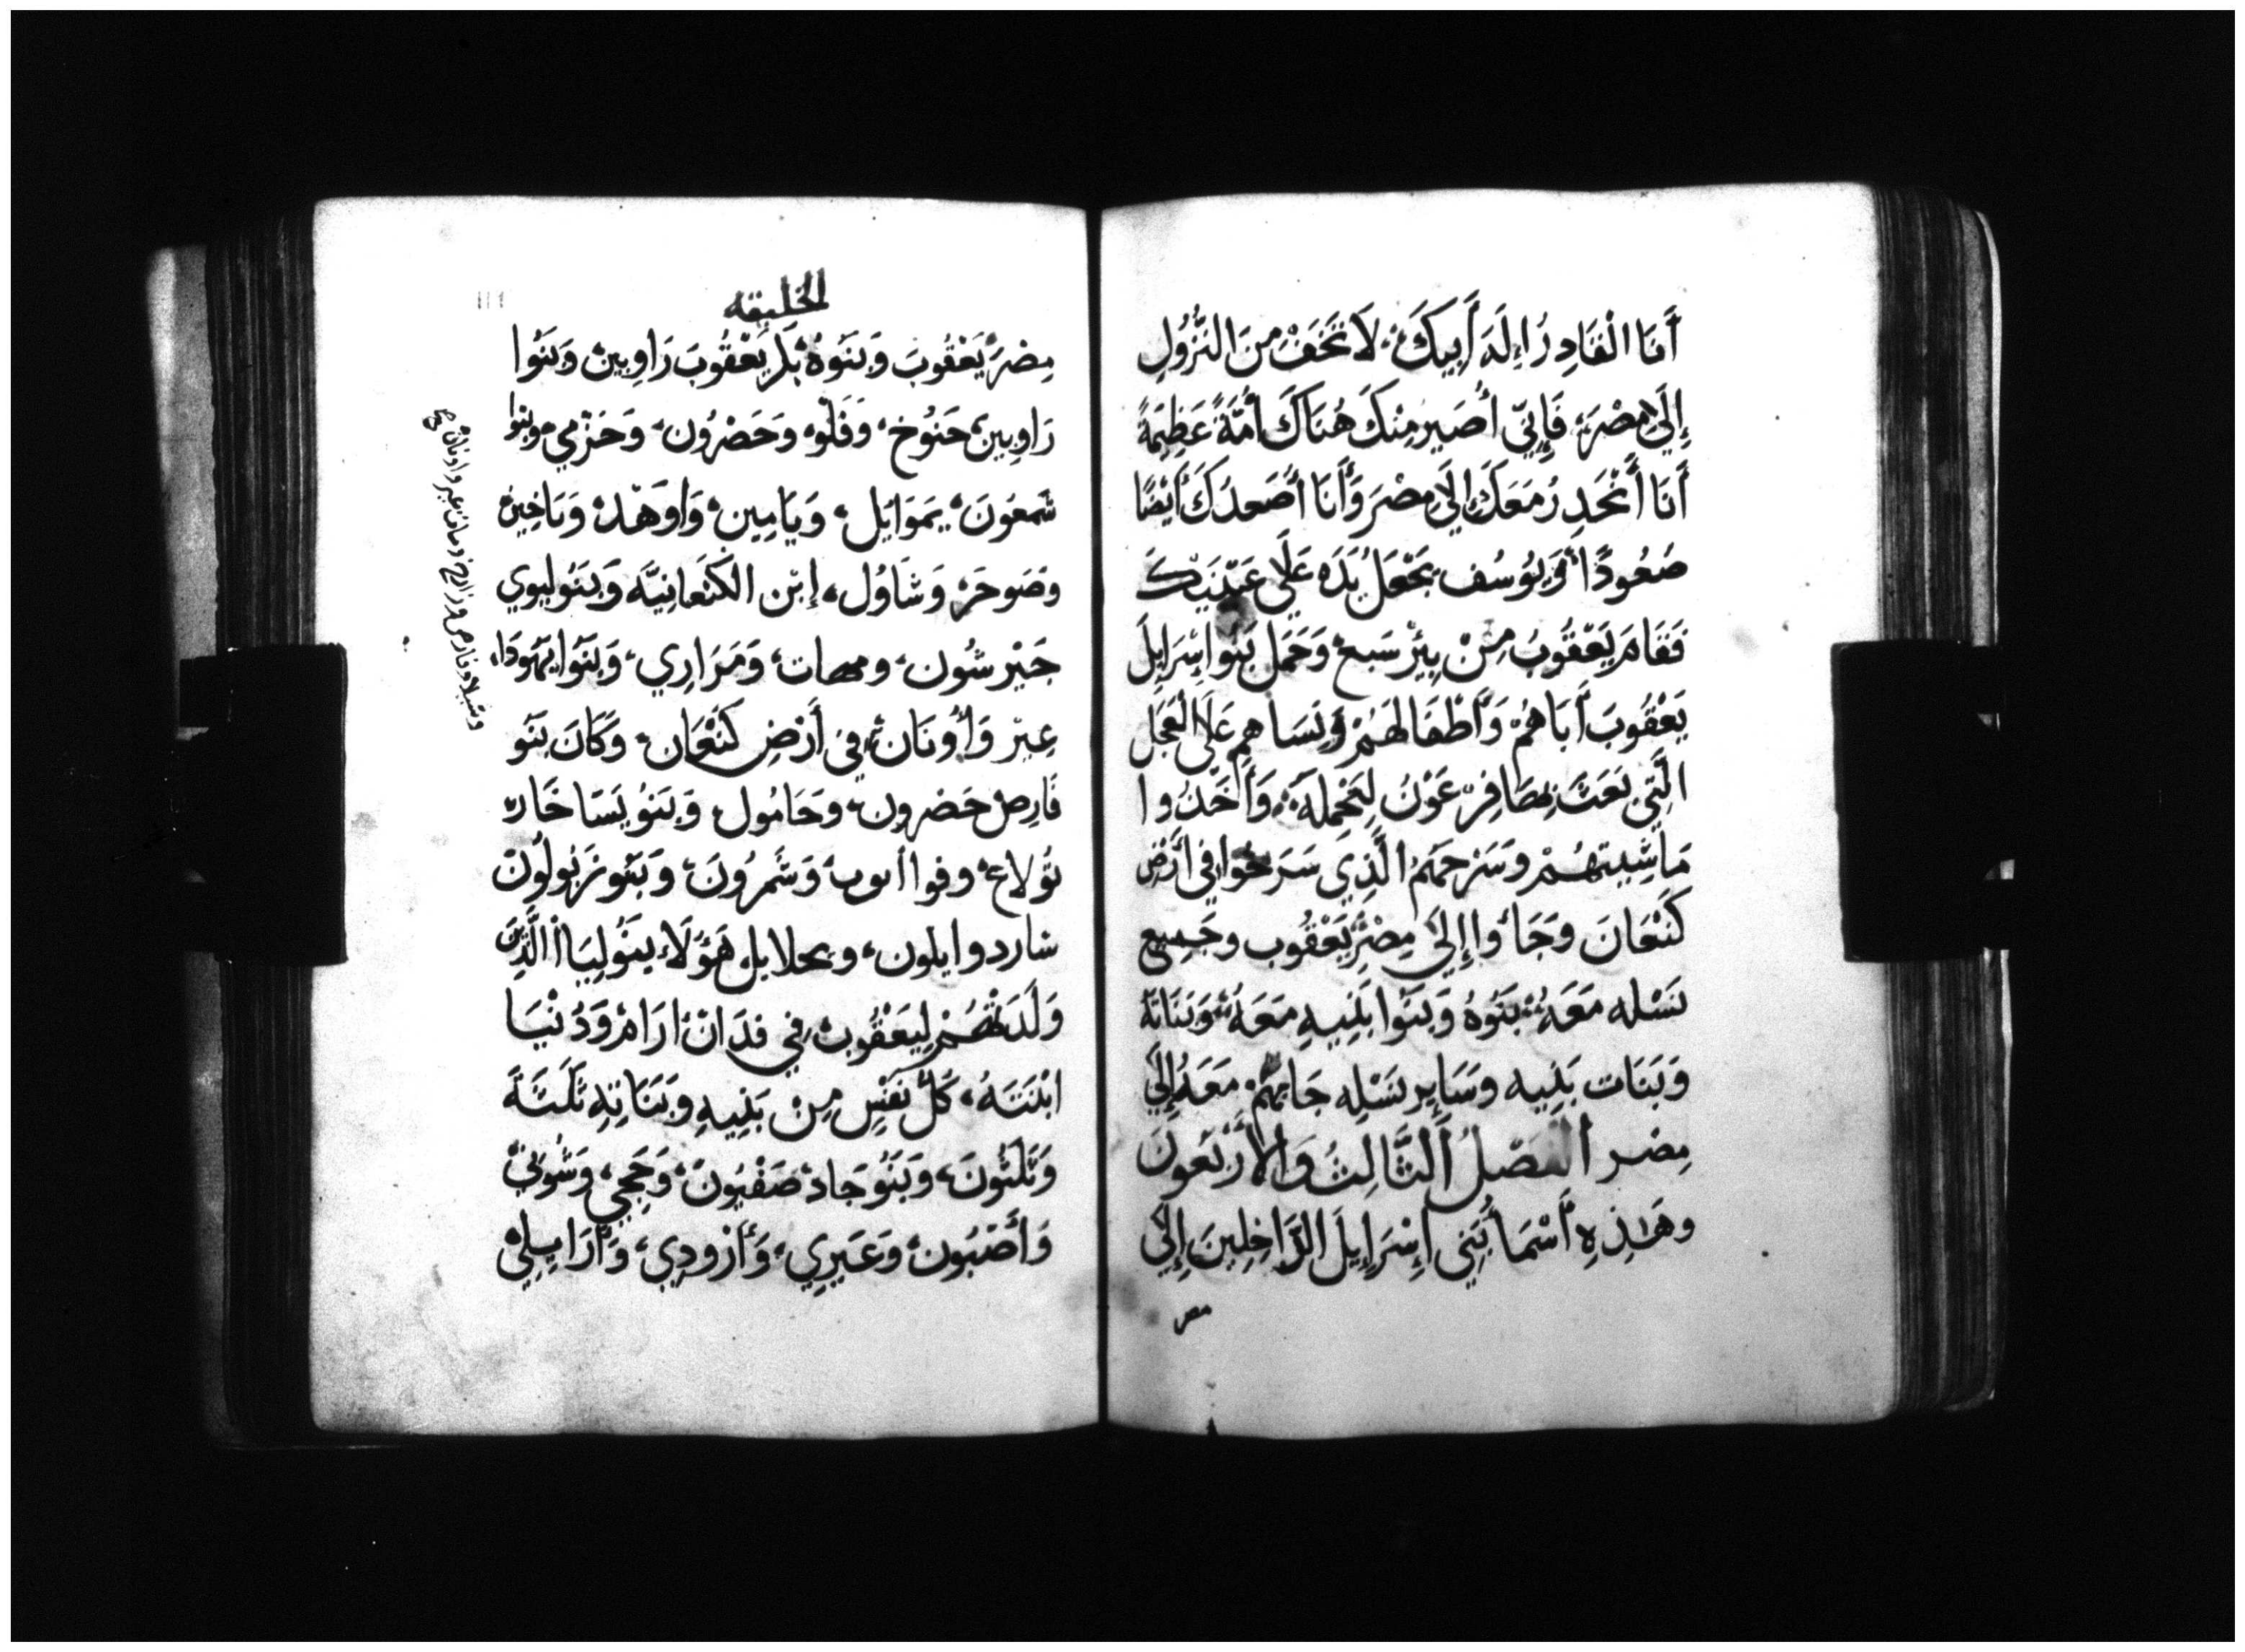 أَنَا الْقَادِرُ إِلَهَ أَبِيكَ لَا تَخَفْ مِنَ النُّزُولِ
إِلَي مِصْرَ فَإِنِّي أُصَيِّرُ مِنْكَ هُنَاكَ أُمَّةً عَظِيمَةً
أَنَا أَنْحَدِرُ مَعَكَ إِلَي مِصْرَ وَأَنَا أُصْعِدُكَ أَيْضًا
صُعُودًا وَيُوسُف يَجْعَلُ يَدَهُ عَلَي عَيْنَيْكَ
فَقَامَ يَعْقُوبُ مِنْ بِيْرْ سَبع وَحَمَل بَنُو إِسْرَايِلَ
يَعْقُوبَ أَبَاهُمْ وَأَطْفَالَهُمْ وَنِسَاهِم عَلَي الْعَجَلِ
الَّتِي بَعَثَ بِهَا فِرْعَوْنُ لِتَحْمِلَهُ وَأَخَذُوا
مَاشِيتهُمْ وَسَرحَهُمُ الَّذِي سَرَحُوا فِي أَرْضِ
كَنْعَانَ وَجَاءُوا إِلَي مِصْرَ يَعْقُوب وجَمِيع
نَسْله مَعَهُ بَنُوهُ وَبَنُوا بَنِيهِ مَعَهُ وَبَنَاتهُ
وَبَنَات بَنِيه وسَايِر نَسْلِه جَابهُمْ مَعَهُ إِلَي
مِصر الفَصْلُ الثَّالِثُ وَالأَرْبَعُونَ
وهَذِهِ أَسْمَا بَنِي إِسْرَايِلَ الدَّاخِلِينَ إِلَي
مصر
الخليقه
مِصْرَ يَعْقُوبَ وَبَنُوهُ بِكر يَعْقُوبَ رَاوِبين وَبَنُوا
رَاوِبين حَنُوخ وَفَلُو وَحَضْرُون وَحَرْمِي وبنوا
شمعُونَ يَمَوَايل وَيَامِين وَاوهَد وَيَاخِين
وصَوحَرْ وَشَاوُل إبْن الكَنْعَانِيَّه وَبَنُو ليوي
جَيْرشُون وقهات وَمَرَارِي وَبَنُوا يَهُودَا
عِير وَأُونَان في أَرْضِ كَنْعَان وَكَانَ بَنُو
فَارِص حَضرون وَحَامُول وَبَنُو يَسَاخَار
تُولاع وفوا ايوب وَشَمْرُونَ وَبَنُو زَبُولُون
سارد وايلون ويحلايل هَؤُلَاء بَنُو لِيَا الَّذِينَ
وَلَدَتْهُمْ لِيَعْقُوب فِي فدَان ارَام وَدُنْيَا
ابْنَتَهُ كُلّ نَفْسٍ مِنْ بَنِيهِ وبَنَاتِهِ ثَلَثَةَ
وَثَلثُونَ وَبَنُو جَاد صَفْيُونَ وَحَجِي وَشُونِي
وَأَصْبُون وَعَيرِي وَأَزودِي وَأَرَايلِي
وشيلا وفارص وزارح ومات عير واونان صح